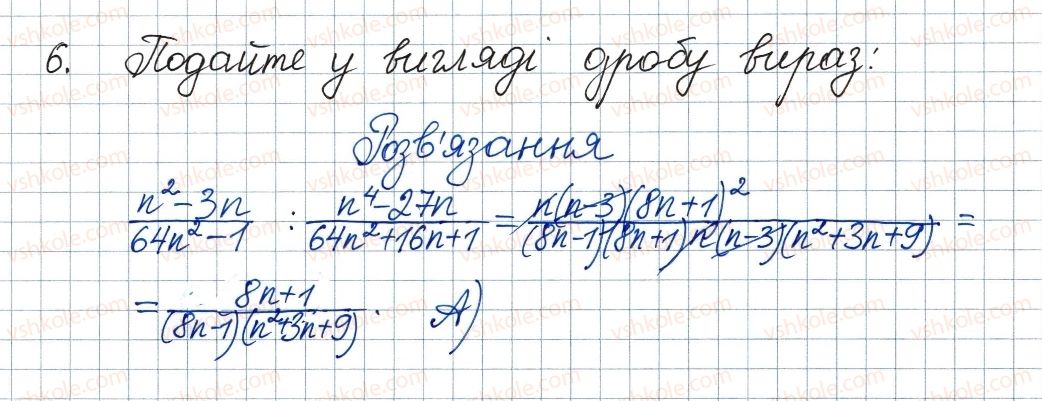 6. Подайте у вигляді дробу вираз:
Розв'язання
(n² - 3n)/(64n² - 1) : (n⁴ - 27n)/(64n² + 16n + 1) = (n(n-3)(8n+1)²)/((8n-1)(8n+1)n(n-3)(n²+3n+9)) =
= (8n+1)/((8n-1)(n²+3n+9)). А)
vshkole.com